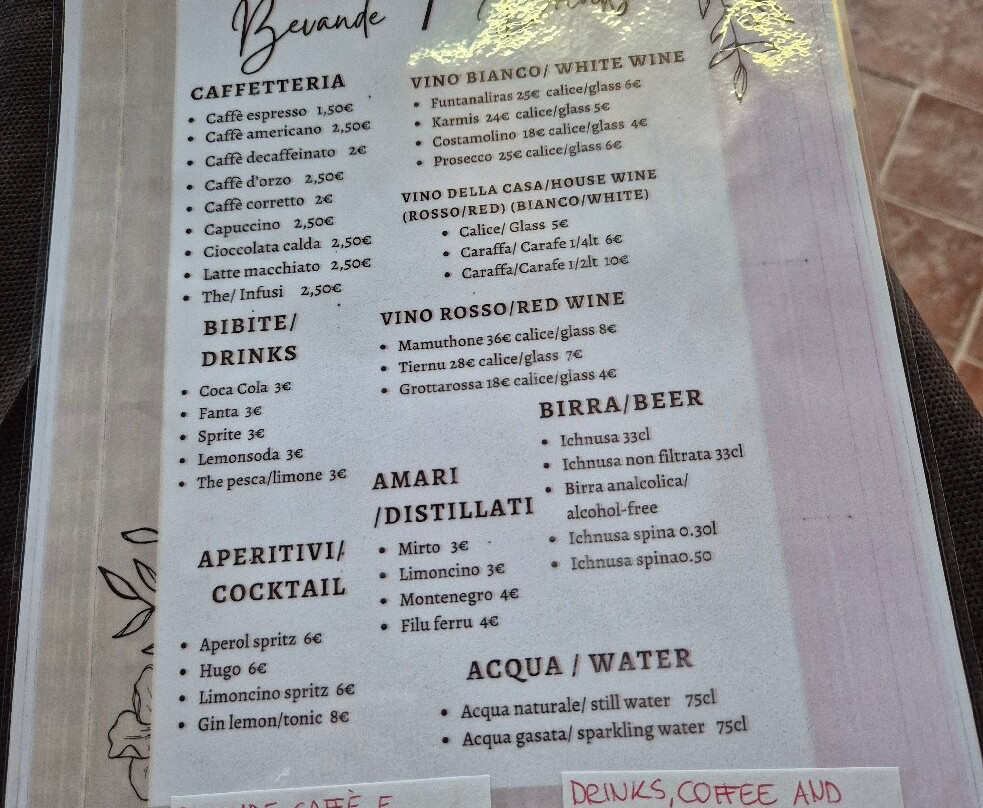 Bevande /
CAFFETTERIA
• Caffè espresso 1,50€
• Caffè americano 2,50€
• Caffè decaffeinato 2€
• Caffè d'orzo 2,50€
• Caffè corretto 2€
• Capuccino 2,50€
• Cioccolata calda 2,50€
• Latte macchiato 2,50€
• The/ Infusi 2,50€
BIBITE/
DRINKS
• Coca Cola 3€
• Fanta 3€
• Sprite 3€
• Lemonsoda 3€
• The pesca/limone 3€
APERITIVI/
COCKTAIL
• Aperol spritz 6€
• Hugo 6€
• Limoncino spritz 6€
• Gin lemon/tonic 8€
VINO BIANCO/ WHITE WINE
• Funtanaliras 25€ calice/glass 6€
• Karmis 24€ calice/glass 5€
• Costamolino 18€ calice/glass 4€
• Prosecco 25€ calice/glass 6€
VINO DELLA CASA/HOUSE WINE
(ROSSO/RED) (BIANCO/WHITE)
• Calice/ Glass 5€
• Caraffa/ Carafe 1/4lt 6€
• Caraffa/Carafe 1/2lt 10€
VINO ROSSO/RED WINE
• Mamuthone 36€ calice/glass 8€
• Tiernu 28€ calice/glass 7€
• Grottarossa 18€ calice/glass 4€
AMARI
/DISTILLATI
• Mirto 3€
• Limoncino 3€
• Montenegro 4€
• Filu ferru 4€
BIRRA/BEER
• Ichnusa 33cl
• Ichnusa non filtrata 33cl
• Birra analcolica/
alcohol-free
• Ichnusa spina 0.30l
• Ichnusa spina0.50
ACQUA / WATER
• Acqua naturale/ still water 75cl
• Acqua gasata/ sparkling water 75cl
CAFFÈ E
DRINKS, COFFEE AND